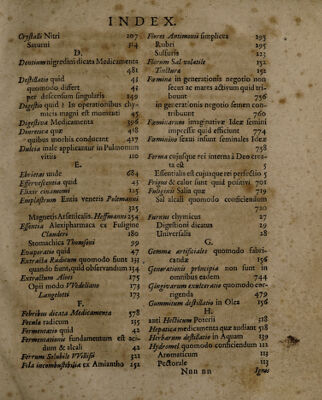 INDEX.
Crystalli Nitri 207
Saturni 514
D.
Dentium nigredini dicata Medicamenta
481
Destillatio quid 41
quomodo differt 41
per descensum singularis
Digestio quid? In operationibus chy-
micis magni est momenti 45
Digestiva Medicamenta 396
Diuretica quæ 418
quibus morbis conducant 417
Dulcia male applicantur in Pulmonum
vitiis 110
E.
Ebrietas unde 684
Effervescentia quid 45
Elixir coniomeno 125
Emplastrum Entis veneris Polemanni
325
Magnetis Arsenicalis Hoffmanni 254
Essentia Alexipharmaca ex Fuligine
Clauderi 180
Stomachica Thomsoni 99
Evaporatio quid 47
Extracta Radicum quomodo sunt 133
quando sunt, quid observandum 134
Extractum Aloes 175
Opii modo Wedeliano 173
Langelotti 173
F.
Febribus dicata Medicamenta 578
Fecula radicum 135
Fermentatio quid 42
Fermentationis fundamentum est aci-
dum & alcali 42
Ferrum Solubile Willisii 321
Fila incombustibilia ex Amiantho 252
Flores Antimonii simplices 295
Rubri 295
Sulfuris 223
Florum Sal volatile 152
Tinctura 152
Fæmina in generationis negotio non
secus ac mares activum quid tri-
buunt 756
in generationis negotio semen con-
tribuunt 760
Fæminarum imaginativæ Ideæ semini
impressæ quid efficiunt 774
Fæminino sexui insunt seminales Ideæ
758
Forma cujusque rei interna à Deo crea-
ta est 5
Essentialis est cujusque rei perfectio 5
Frigus & calor sunt quid positivi 701
Fuliginis Salia quæ 719
Sal alcali quomodo conficiendum
720
Furnus chymicus 27
Digestioni dicatus 29
Universalis 28
G.
Gemmæ artificiales quomodo fabri-
candæ 156
Generationis principia non sunt in
omnibus eadem 744
Gingivarum exulceratio quomodo cor-
rigenda 479
Gummitum destillatio in Olea 156
H.
anti Hecticum Poterii 518
Hepatica medicamenta quæ audiant 518
Herbarum destillatio in Aquam 139
Hydromel quomodo conficiendum 112
Aromaticum 113
Pectorale 113
Nnn nn Ignes